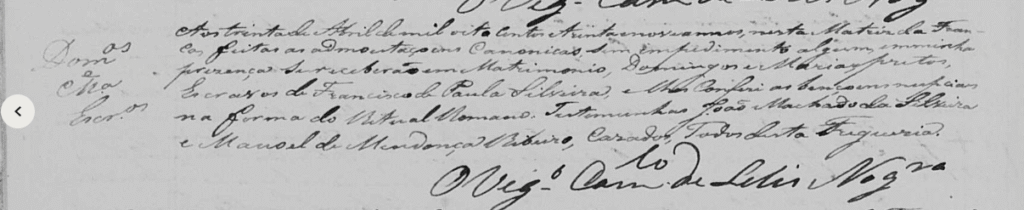 O Vigº Camlo de Lelis Nogra
Domos
e
Ma
Escr.os
Aos trinta de Abril de mil oito centos e trinta e nove annos, nesta Matriz da Fran-
ca, feitas as admoestaçoens Canonicas sem impedimento algum, em minha
prezença se receberão em Matrimonio, Domingos e Maria pretos,
Escravos de Francisco de Paula Silveira, e lhes Conferi as bençoens nupciaes
na forma do Ritual Romano. Testemunhas João Machado da Silveira
e Manoel de Mendonça Ribeiro, Cazados, Todos desta Freguezia.
O Vigº Camlo de Lelis Nogra